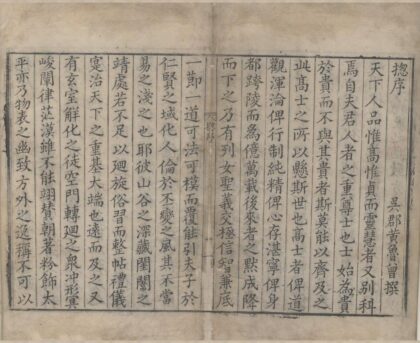 揔序
吳郡黃魯曾撰
天下人品惟高惟貞而靈慧者又别科
焉自夫君人者之重尊士也士始為貴
於貴而不與其貴者斯䓕能以齊及之
此高士之所以懸斯世也高士者俾道
觀渾淪俾行制純精俾心存湛寧俾身
都跨陵而為億萬載後來者之默成降
而下之乃有列女聖義交極信知兼底
一節一道可法可模而覆能引夫子於
仁賢之域化人倫於丕變之風其不當
易之淺之也耶彼山谷之深藏閨闥之
靖處若不足以廻旋俗習而整帖禮儀
寔治天下之重基大端也遠而及之又
有玄室解化之徒空門轉廻之衆冲形冥
峻闡律茫漠雖不能翊賛朝著粉飾太
平亦乃物表之幽致方外之逸稱不可以